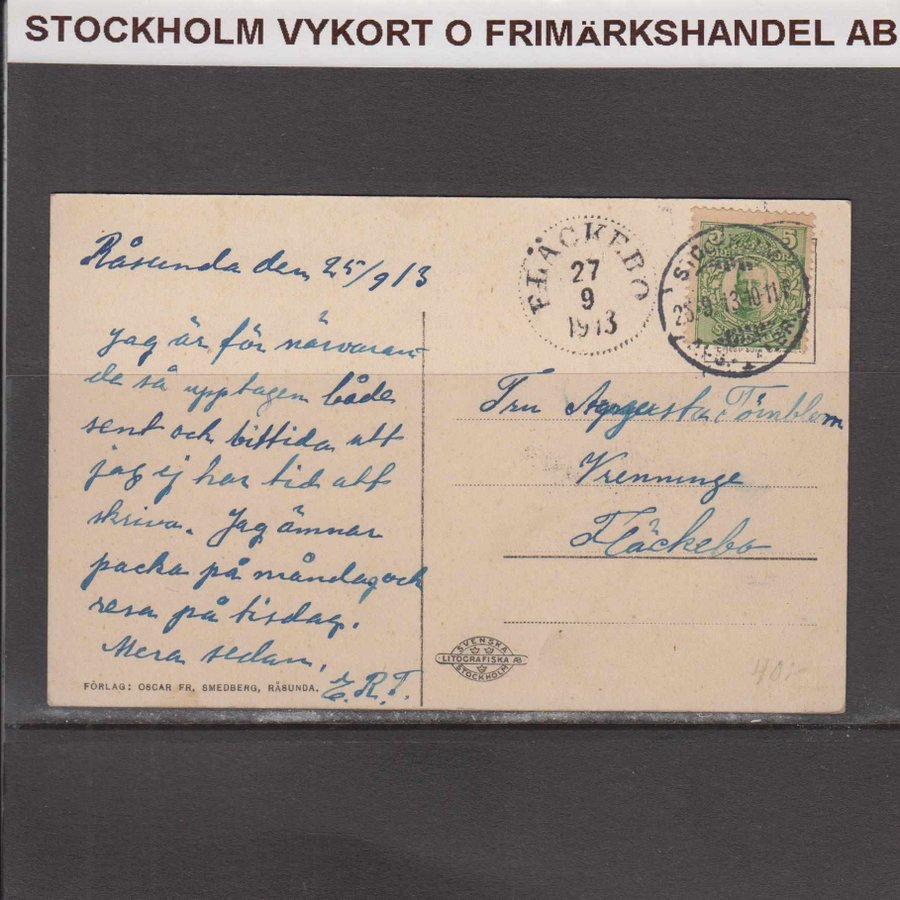 STOCKHOLM VYKORT O FRIMÄRKSHANDEL AB
Råsunda den 25/9 13
Jag är för närvaran-
de så upptagen både
sent och bittida att
jag ej har tid att
skriva. Jag ämnar
packa på måndag och
resa på tisdag.
Mera sedan.
E.R.T.
FÖRLAG: OSCAR FR. SMEDBERG, RÅSUNDA.
FLÄCKEBO
27
9
1913
5
Fru Augusta Törnblom
Vrenninge
Fläckebo
SVENSKA
LITOGRAFISKA AB
STOCKHOLM
40:-